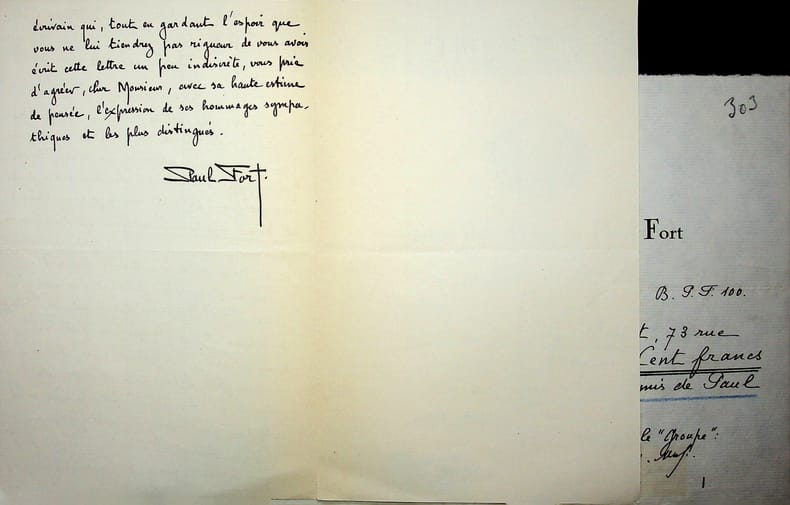 écrivain qui, tout en gardant l'espoir que
vous ne lui tiendrez pas rigueur de vous avoir
écrit cette lettre un peu indiscrète, vous prie
d'agréer, cher Monsieur, avec sa haute estime
de pensée, l'expression de ses hommages sympa-
thiques et les plus distingués.
Paul Fort.
303
Fort
B. P. F. 100.
t, 73 rue
Cent francs
mis de Paul
le "Groupe":